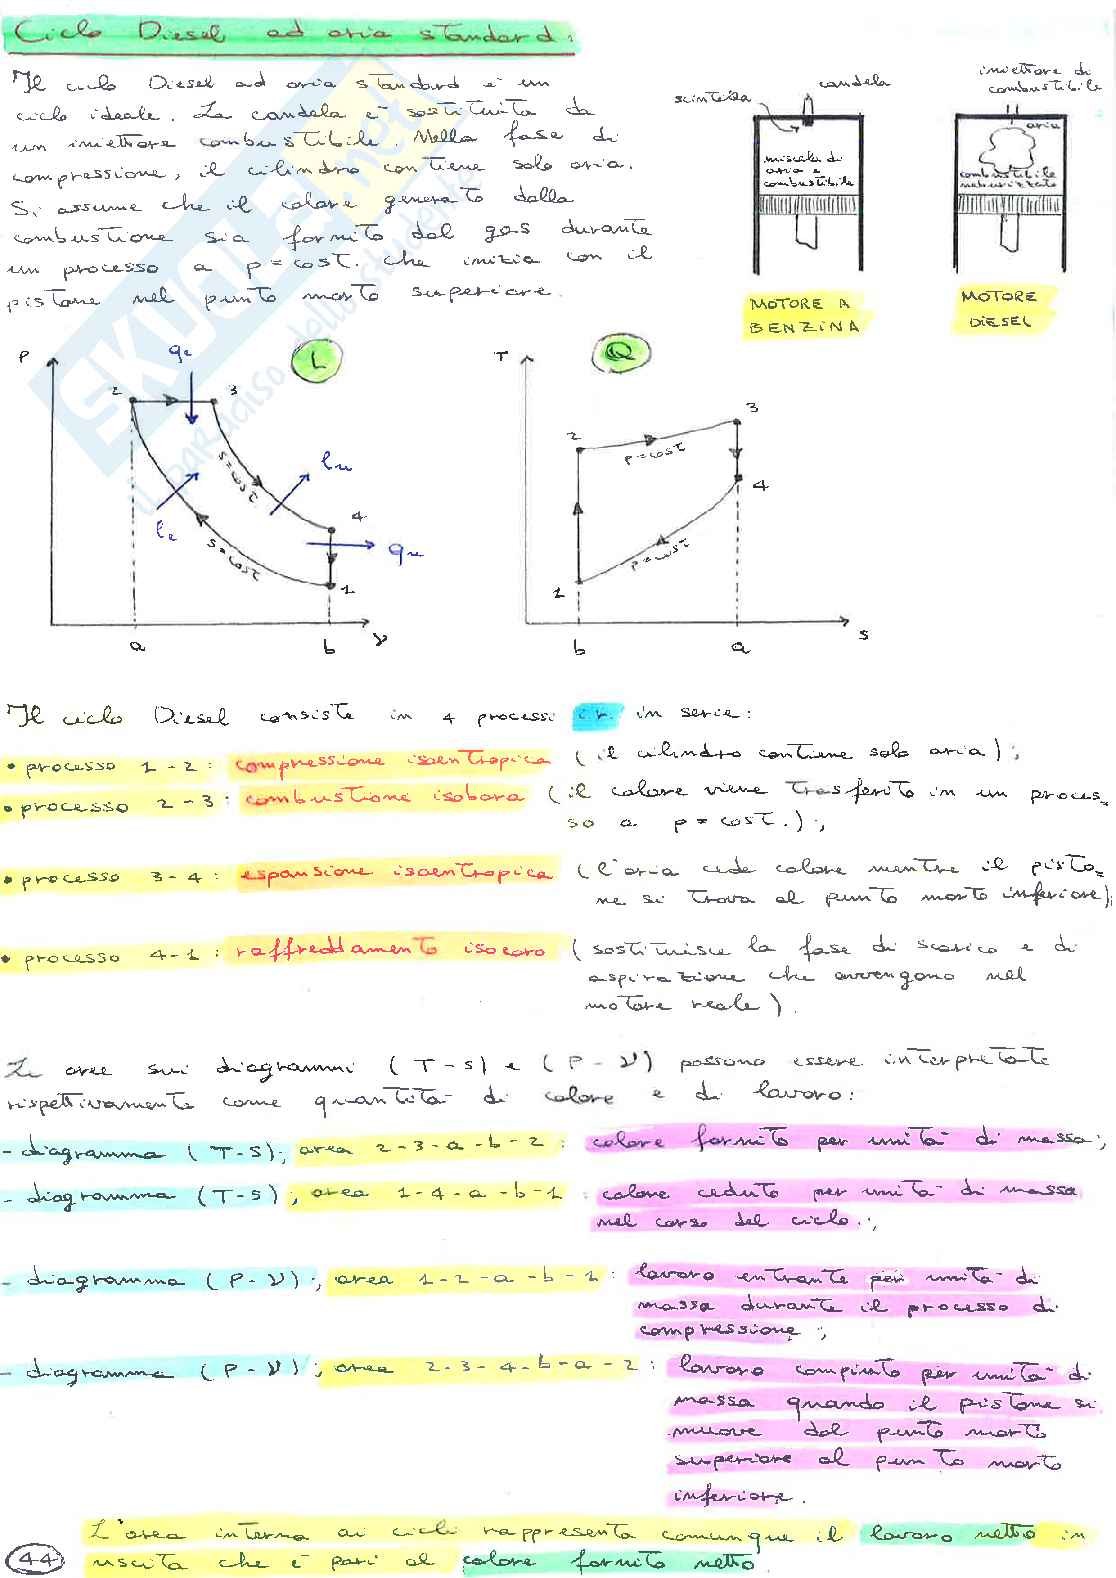 Ciclo Diesel ad aria standard:
Il ciclo Diesel ad aria standard è un
ciclo ideale. La candela è sostituita da
un iniettore combustibile. Nella fase di
compressione, il cilindro contiene solo aria.
Si assume che il calore generato dalla
combustione sia fornito dal gas durante
un processo a p = cost. che inizia con il
pistone nel punto morto superiore.
candela
scintilla
miscela di
aria e
combustibile
MOTORE A
BENZINA
iniettore di
combustibile
aria
combustibile
nebulizzato
MOTORE
DIESEL
P
L
qe
2
3
s=cost
lu
le
4
s=cost
qu
1
a
b
ν
T
Q
3
2
p=cost
4
p=cost
1
b
a
s
Il ciclo Diesel consiste in 4 processi i.r. in serie:
• processo 1-2: compressione isoentropica (il cilindro contiene solo aria);
• processo 2-3: combustione isobara (il calore viene trasferito in un proces=
so a p=cost.);
• processo 3-4: espansione isoentropica (l'aria cede calore mentre il pisto=
ne si trova al punto morto inferiore);
• processo 4-1: raffreddamento isocoro (sostituisce la fase di scarico e di
aspirazione che avvengono nel
motore reale).
Le aree sui diagrammi (T-s) e (P-ν) possono essere interpretate
rispettivamente come quantità di calore e di lavoro:
- diagramma (T-S); area 2-3-a-b-2: calore fornito per unità di massa;
- diagramma (T-s); area 1-4-a-b-1: calore ceduto per unità di massa
nel corso del ciclo.;
- diagramma (P-ν); area 1-2-a-b-1: lavoro entrante per unità di
massa durante il processo di
compressione;
- diagramma (P-ν); area 2-3-4-b-a-2: lavoro compiuto per unità di
massa quando il pistone si
muove dal punto morto
superiore al punto morto
inferiore.
L'area interna ai cicli rappresenta comunque il lavoro netto in
uscita che è pari al calore fornito netto.
44
SKUOLA.net
il paradiso dello studente